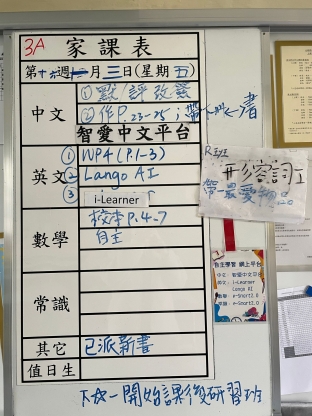 3A
家課表
第十六週十二月三日(星期五)
中文
① 點/評改簽
② 作P.23-25；帶
書
智愛中文平台
英文
① WP4 (P.1-3)
② Lango AI
③ i-Learner
數學
校本P.4-7
自主
常識
其它
已派新書
值日生
下次一開始課後研習班
R班
形容詞工
帶最愛物品
自主學習 網上平台
中文：智愛中文平台
英文：i-Learner
Lango AI
數學：e-Smart2.0
常識：e-Smart2.0